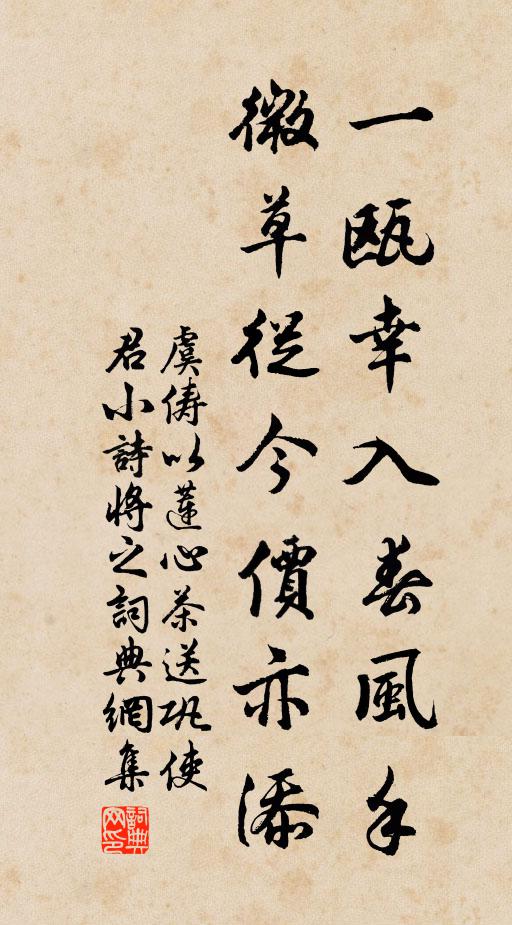 一甌幸入春風手
微草從今價亦添
虞儔以蓮心茶送巩使
君小詩將之詞典網集
詞典网印